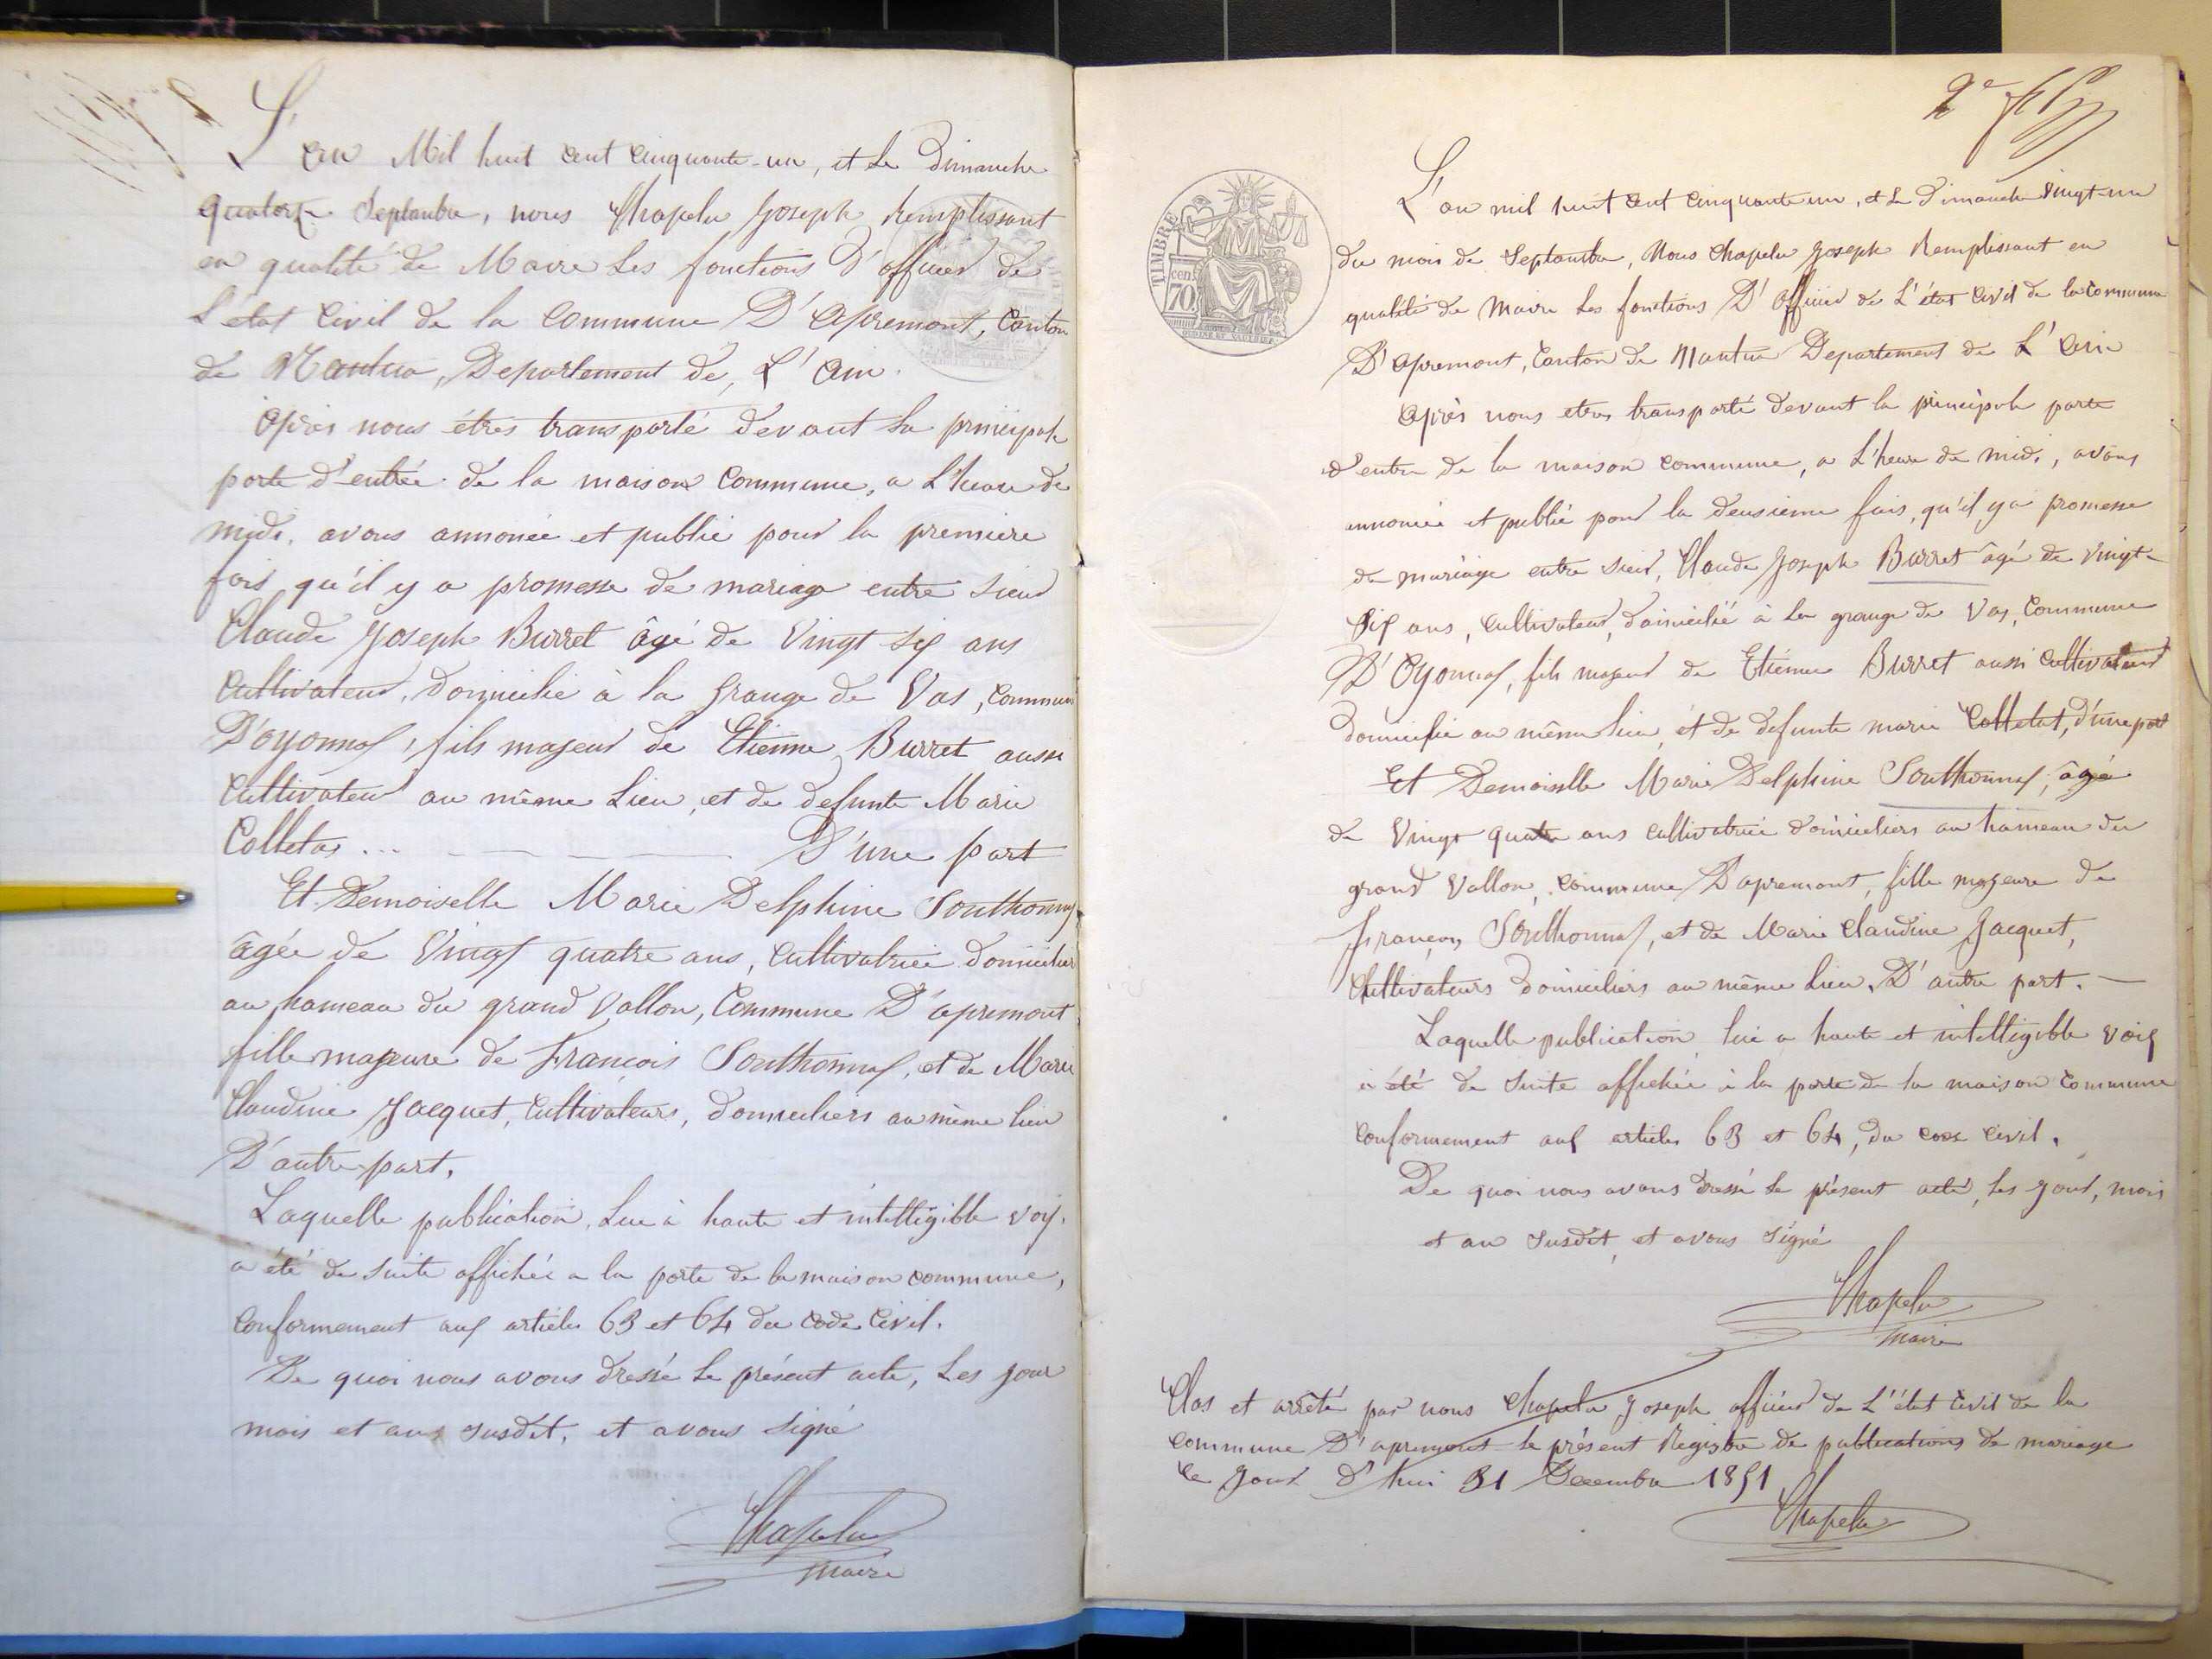 L'an Mil huit cent cinquante-un, et le Dimanche
quatorze Septembre, nous Chapelu Joseph Remplissant
en qualité de Maire les fonctions D'officier de
L'état Civil de la Commune D'apremont, Canton
de Nantua, Departement de, L'ain.
après nous êtres transporté devant la principale
porte d'entrée de la maison Commune, a L'heure de
midi, avons annoncée et publie pour la premiere
fois qu'il y a promesse de mariage entre sieur
Claude Joseph Burret âgé de Vingt six ans
Cultivateur, domicilié à la Grange de Vas, Commune
D'oyonnax, fils majeur de Etienne Burret aussi
Cultivateur au même Lieu, et de defunte Marie
Colletas ... D'une part
Et Demoiselle Marie Delphine Southonnax
âgée de Vingt quatre ans, Cultivatrice domiciliers
au hameau du grand Vallon, Commune D'apremont
fille majeure de François Southonnax, et de Marie
Claudine Jacquet, Cultivateurs, domiciliers au même lieu
D'autre part,
Laquelle publication, Lue à haute et intelligible voix.
a été de suite affichée a la porte de la maison commune,
Conformement aux articles 63 et 64 du Code Civil.
De quoi nous avons dressé le présent acte, Les jour
mois et ans susdit, et avons signé
Chapelu
Maire
2e
TIMBRE
cen.
70
L'an mil huit cent cinquante un, et Le Dimanche Vingt-un
du mois de Septembre, Nous Chapelu Joseph Remplissant en
qualité de Maire Les fonctions D'officier de L'état Civil de la Commune
D'apremont, Canton de Nantua Departement de L'ain
après nous etres transporté devant la principale porte
d'entre de la maison commune, a L'heure de midi, avons
annoncée et publié pour la deusieme fois, qu'il y a promesse
de mariage entre sieur, Claude Joseph Burret âgé de vingt-
six ans, Cultivateur, domicilié à La grange de Vas, Commune
D'Oyonnax, fils majeur de Etiénne Burret aussi Cultivateur
domicilié au même lieu, et de defunte marie Colletat, d'une part
Et Demoiselle Marie Delphine Southonnax, âgée
de Vingt quatre ans cultivatrice domiciliers au hameau du
grand Vallon, Commune D'apremont, fille majeure de
françois Southonnax, et de Marie Claudine Jacquet,
Cultivateurs domiciliers au même Lieu, D'autre part.
Laquelle publication lue a haute et intelligible voix
a été de suite affichée à la porte de la maison Commune
Conformement aux articles 63 et 64, du code civil.
De quoi nous avons dressé le présent acté, les jour, mois
et an susdit, et avons signé
Chapelu
Maire
Clos et arrêté par nous Chapelu Joseph officier de L'état Civil de la
commune D'apremont le présent Registre de publications de mariage
Ce jour d'hui 31 Decembre 1851
Chapelu